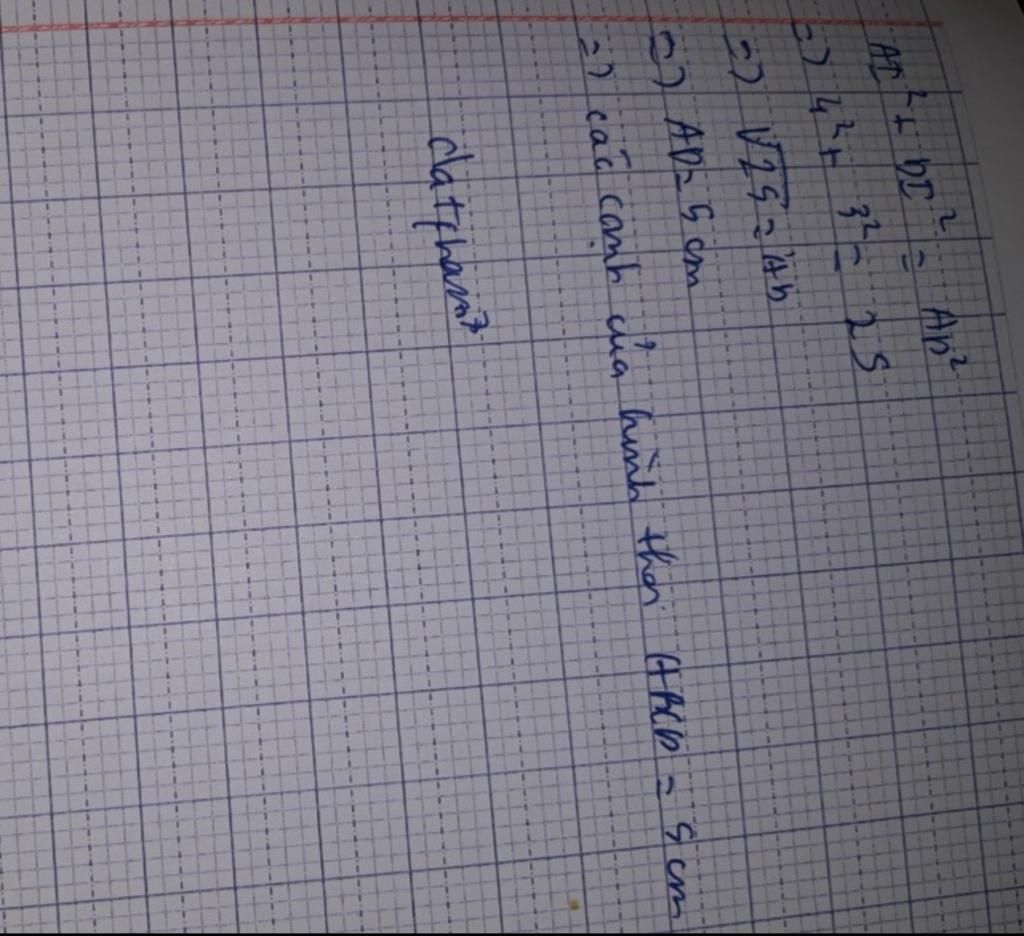 AI² + DI² = AD²
=) 4² + 3² = 25
=) √25 = AD
=) AD = 5 cm
=) các cạnh của hình thoi ABCD = 5 cm